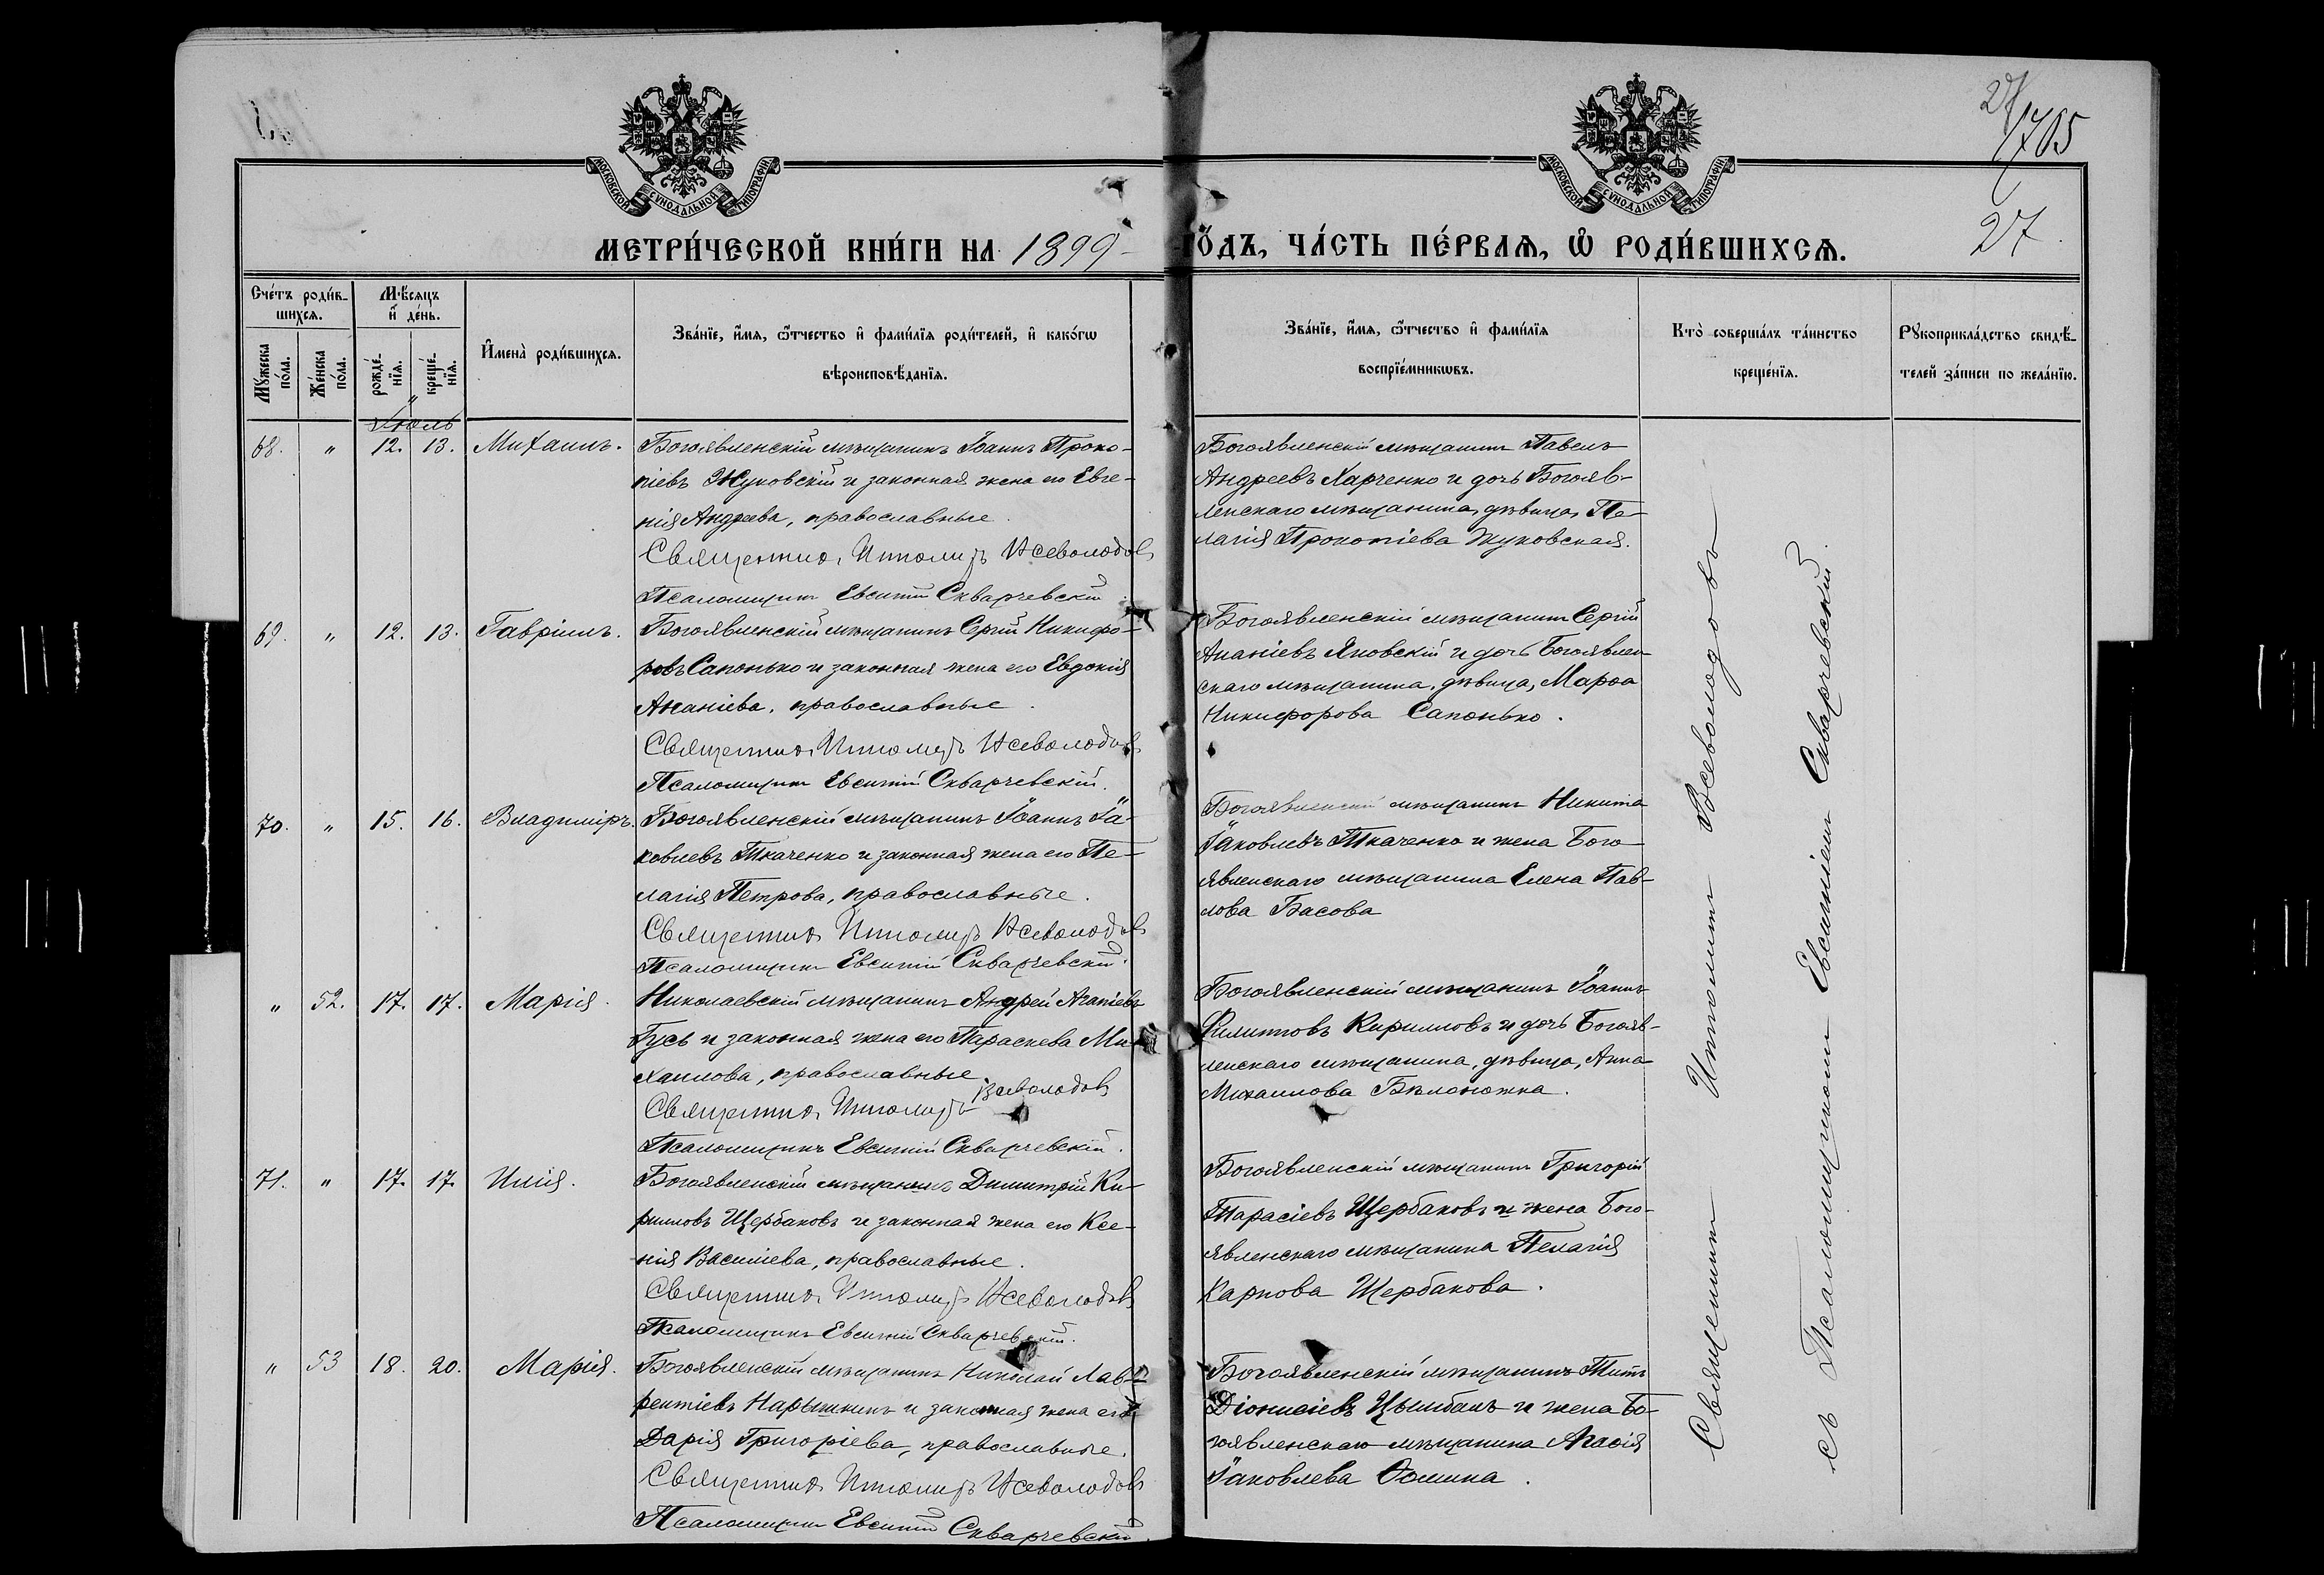 27
1705
27.
МОСКОВСКОЙ СѴНОДАЛЬНОЙ ТИПОГРАФІИ
МОСКОВСКОЙ СѴНОДАЛЬНОЙ ТИПОГРАФІИ
МЕТРИ́ЧЕСКОЙ КНИ́ГИ НА 1899 ГО́ДЪ, ЧА́СТЬ ПЕ́РВАѦ, Ѡ҆ РОДИ́ВШИХСѦ.
Сче́тъ роди́в-
шихсѧ.
Мꙋжеска
по́ла.
Же́нска
по́ла.
Мѣ́сѧцъ
и҆ де́нь.
рожде́-
нїѧ.
креще́-
нїѧ.
И҆мена̀ роди́вшихсѧ.
Зва́нїе, и҆́мѧ, ѻ҆́тчество и҆ фами́лїѧ роди́телей, и҆ како́гѡ
вѣроисповѣ́данїѧ.
Зва́нїе, и҆́мѧ, ѻ҆́тчество и҆ фами́лїѧ
воспрїе́мникѡвъ.
Кто̀ соверша́лъ та́инство
креще́нїѧ.
Рꙋкоприкла́дство свидѣ́-
телей за́писи по жела́нїю.
Іюль
68. " 12. 13. Михаилъ.
Богоявленскій мѣщанинъ Іоаннъ Проко-
піевъ Жуковскій и законная жена его Евге-
нія Андреева, православные.
Священникъ Ипполитъ Всеволодовъ
Псаломщикъ Евсигній Скварчевскій
Богоявленскій мѣщанинъ Павелъ
Андреевъ Харченко и дочь Богояв-
ленскаго мѣщанина, дѣвица, Пе-
лагія Прокопіева Жуковская.
69. " 12. 13. Гавріилъ.
Богоявленскій мѣщанинъ Сергій Никифо-
ровъ Сапонько и законная жена его Евдокія
Ананіева, православные.
Священникъ Ипполитъ Всеволодовъ
Псаломщикъ Евсигній Скварчевскій.
Богоявленскій мѣщанинъ Сергій
Ананіевъ Яновскій и дочь Богоявлен-
скаго мѣщанина, дѣвица, Марѳа
Никифорова Сапонько.
70. " 15. 16. Владиміръ.
Богоявленскій мѣщанинъ Іоаннъ Іа-
ковлевъ Ткаченко и законная жена его Пе-
лагія Петрова, православные.
Священникъ Ипполитъ Всеволодовъ
Псаломщикъ Евсигній Скварчевскій.
Богоявленскій мѣщанинъ Никита
Іаковлевъ Ткаченко и жена Бого-
явленскаго мѣщанина Елена Пав-
лова Басова
" 52. 17. 17. Марія.
Николаевскій мѣщанинъ Андрей Агапіевъ
Гусь и законная жена его Параскева Ми-
хаилова, православные.
Священникъ Ипполитъ Всеволодовъ
Псаломщикъ Евсигній Скварчевскій.
Богоявленскій мѣщанинъ Іоаннъ
Филипповъ Кирилловъ и дочь Богояв-
ленскаго мѣщанина, дѣвица, Анна
Михаилова Бѣлоножка.
71. " 17. 17. Илія.
Богоявленскій мѣщанинъ Димитрій Ки-
рилловъ Щербаковъ и законная жена его Ксе-
нія Василіева, православные.
Священникъ Ипполитъ Всеволодовъ
Псаломщикъ Евсигній Скварчевскій.
Богоявленскій мѣщанинъ Григорій
Тарасіевъ Щербаковъ и жена Бого-
явленскаго мѣщанина Пелагія
Карпова Щербакова.
" 53 18. 20. Марія.
Богоявленскій мѣщанинъ Николай Лав-
рентіевъ Нарышкинъ и законная жена его
Дарія Григоріева, православные.
Священникъ Ипполитъ Всеволодовъ
Псаломщикъ Евсигній Скварчевскій.
Богоявленскій мѣщанинъ Титъ
Діонисіевъ Цымбалъ и жена Бо-
гоявленскаго мѣщанина Агаѳія
Іаковлева Ѳомина.
Священникъ Ипполитъ Всеволодовъ
съ Псаломщикомъ Евсигніемъ Скварчевскій.